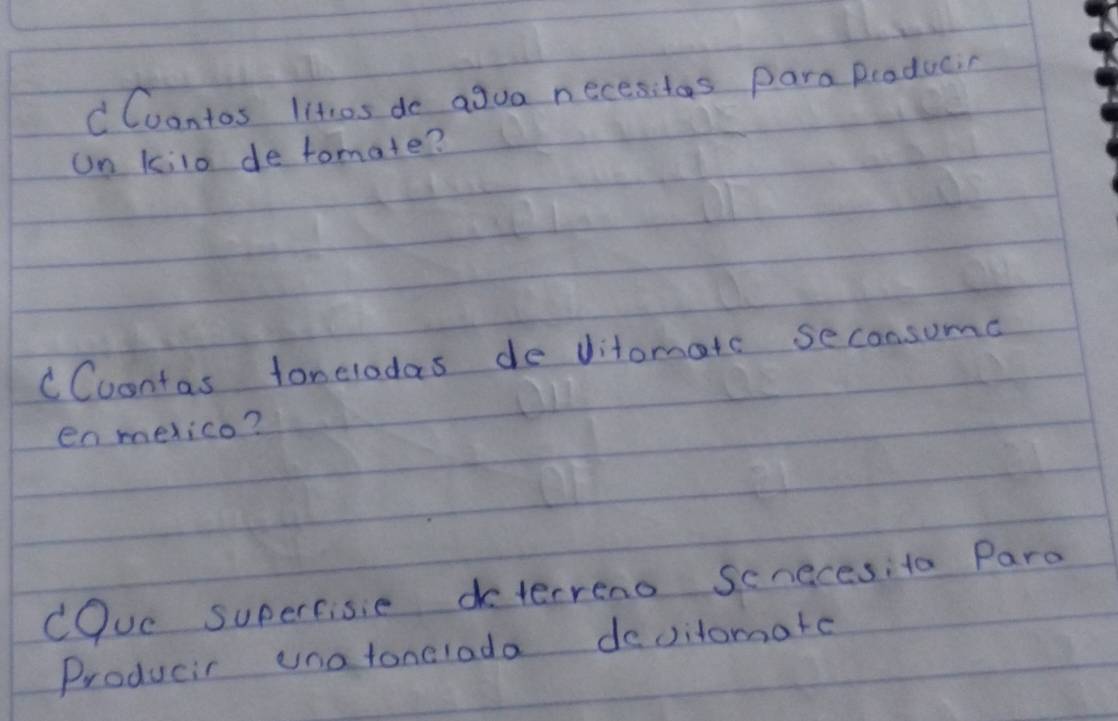 ¿Cuantos litros de agua necesitas para producir
un kilo de tomate?
¿Cuantas toneladas de Jitomate se consume
en mexico?
¿Que superfisie de terreno se necesita Para
Producir una tonelada de Jitomate